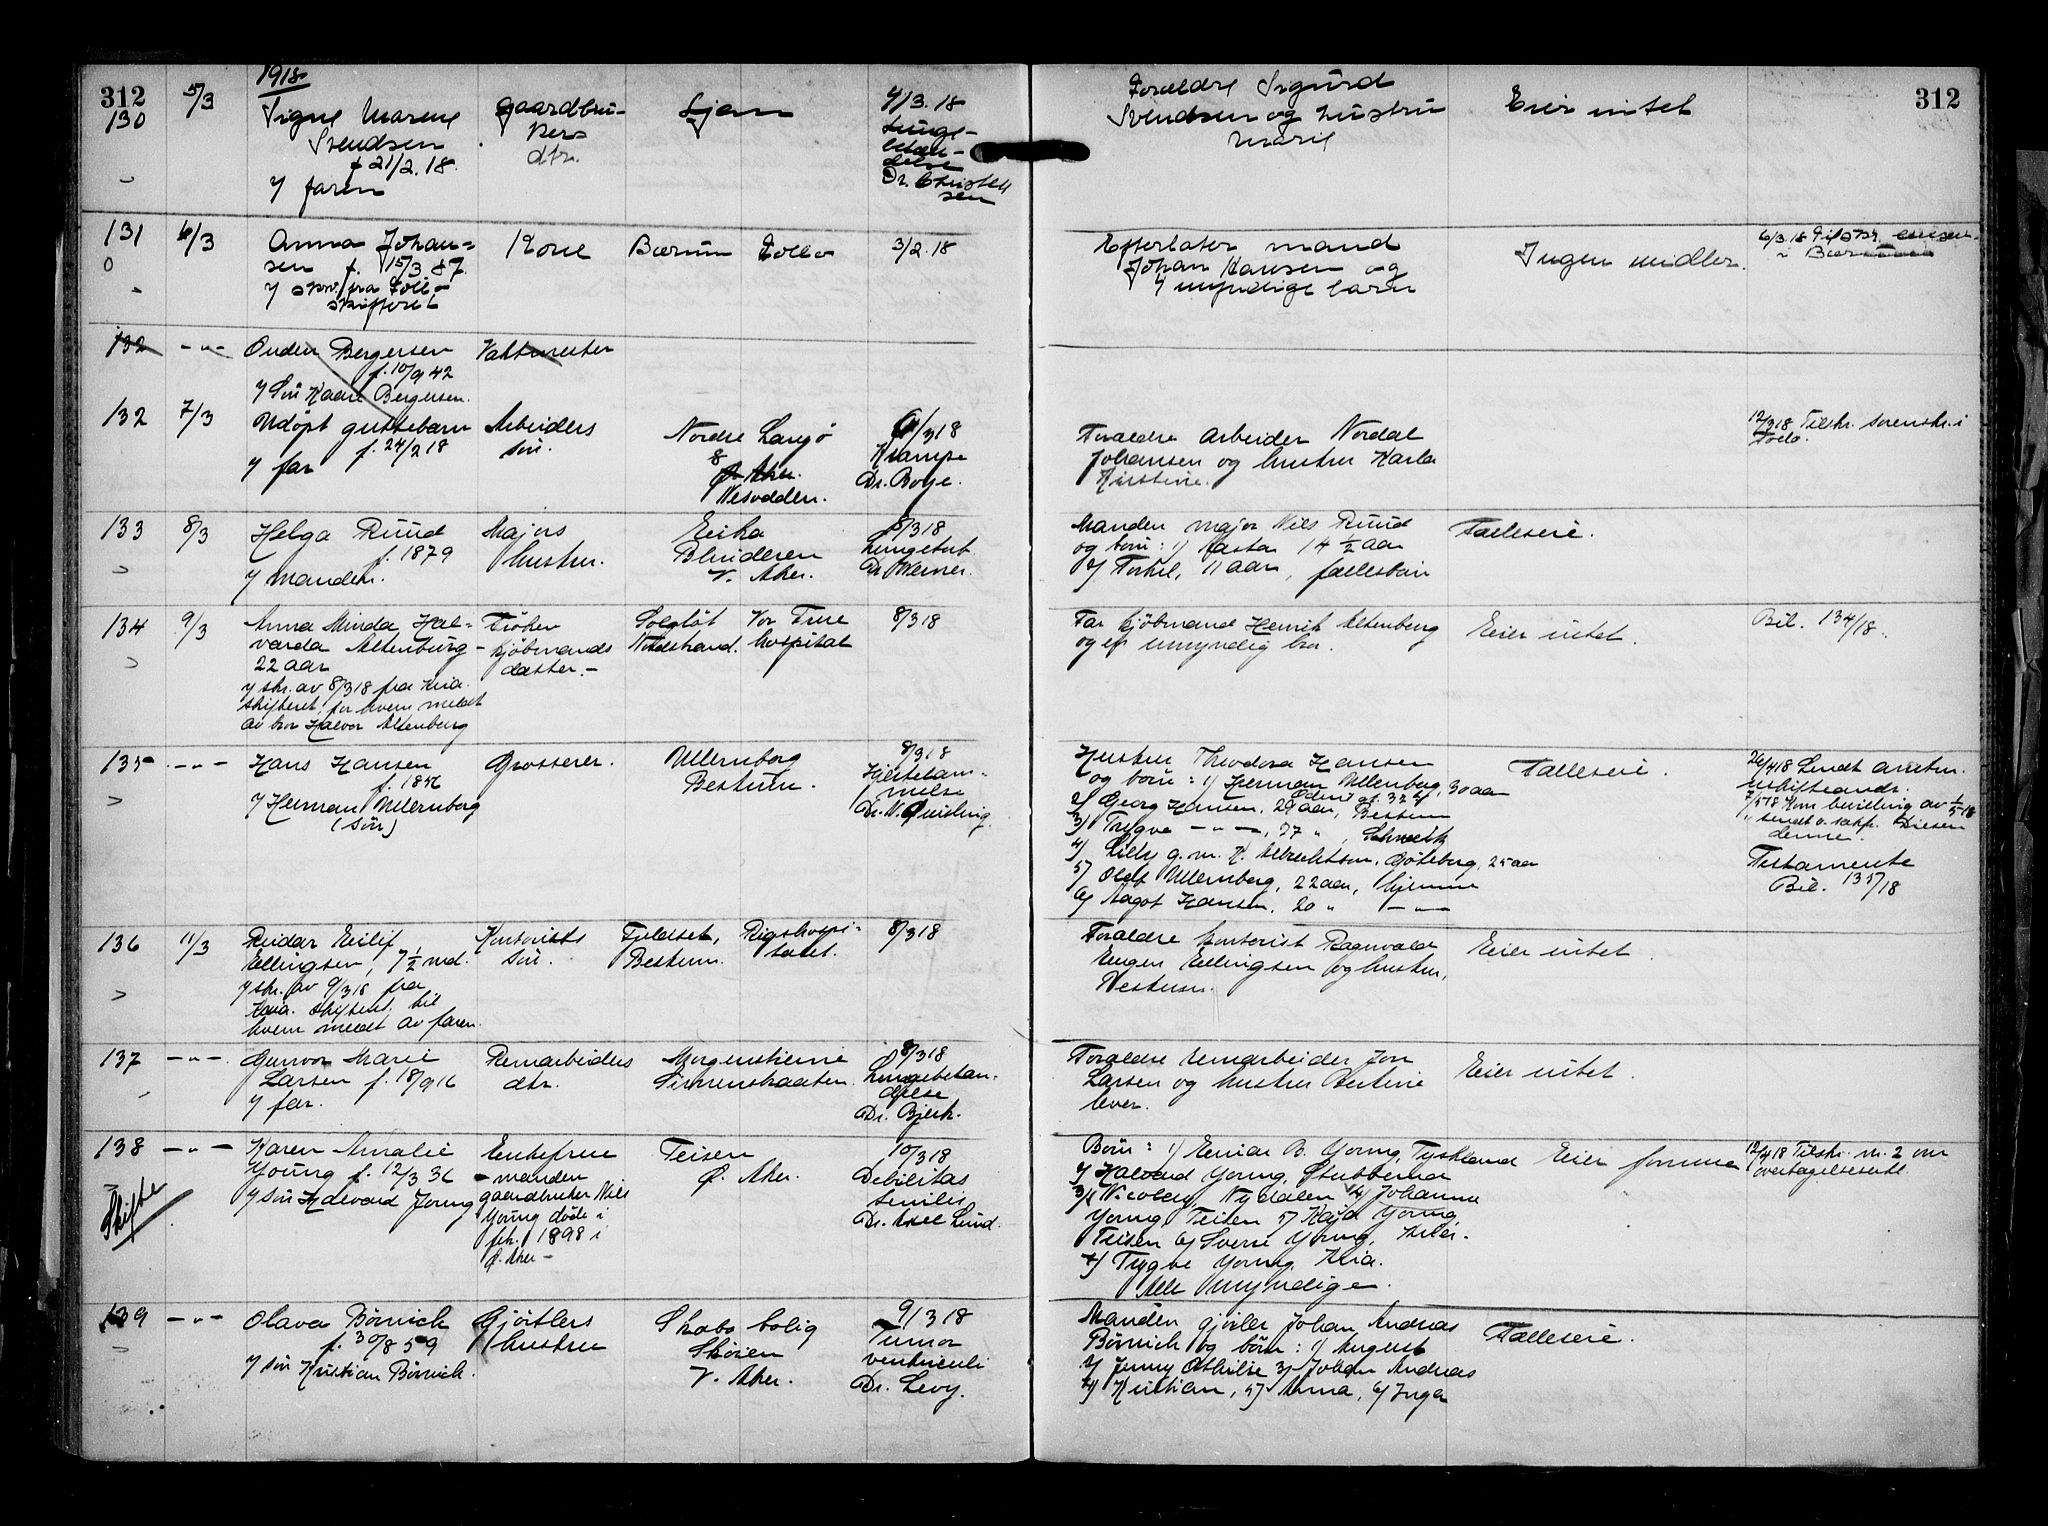 312
1918
312
130
5/3
Signe Marene
Svendsen
f 21/2.18.
v/ faren
Gaardbru-
kers
dtr.
Ljan
4/3.18
Lunge-
betæn-
delse
Dr. Christen
sen
Forældre Sigurd
Svendsen og hustru
Marie
Eier intet
131
6/3
Anna Johan-
sen f. 15/3 87.
v/ skr. fra Follo
skifteret
Kone
Bærum
Follo
3/2.18
Efterlater mand
Johan Hansen og
4 umyndige barn
Ingen midler.
6/3.18 Tilskr.
i Bærum
132
-"-
Ouden Bergersen
f. 10/9 42
v/ Søn Kaare Bergersen.
Vaktmester
132
7/3
Udøpt guttebarn
f. 24/2 18
v/ far
Arbeiders
søn.
Nordre Langø
Ø. Aker.
Nesodden.
6/3 18
Krampe
Dr. Boye.
Foraldre arbeider Nordal
Johansen og hustru Karla
Kirstine.
12/3 18 Tilskr. sorenskr. i
Follo.
133
8/3
Helga Ruud
f. 1879
v/ manden.
Majors
hustru.
Eika
Blinderen
V. Aker.
8/3 18
Lungetub.
Dr. Werner.
Manden major Nils Ruud
og børn: 1) Aasta 14 1/2 aar
2/ Torkel, 11 aar, fællesbarn
Fælleseie.
134
9/3
Anna Minda Hal-
varda Altenburg -
22 aar
v/ skr. av 8/3 18 fra Kria.
skifteret, for hvem meldt
av bror Halvor Altenburg
Frøken
kjøbmands
datter. -
Solgløt
Nordstrand.
Vor Frue
hospital
8/3 18
Far kjøbmand Henrik Altenburg
og en umyndig bror.
Eier intet.
Bil. 134/18.
135
-"-
Hans Hansen
f. 1856
v/ Herman Ullernborg
(søn)
Grosserer.
Ullernborg
Bestum.
8/3 18
Hjertelam-
melse
Dr. N. Quisling.
Hustru Theodora Hansen
og børn: 1) Herman Ullernborg, 30 aar
2) Georg Hansen, 29 aar, Bestum
3) Trygve -"-, 27 "
4) Lilly g. m. H. Albrechtson, Gøteborg, 25 aar
5) Olaf Ullernborg, 22 aar, hjemme
6) Aagot Hansen, 20 " -"-
Fælleseie.
26/4 18 Sendt
uskifteandr.
7/5 18 Kon. bevilling av 1/5 18
sendt o.sakf. Diesen
denne.
Testamente
Bil. 135/18
136
11/3
Reidar Eilif
Ellingsen, 7 1/2 md.
v/ skr. av 9/3 18 fra
Kria. skifteret, til
hvem meldt av faren.
Kontorists
søn.
Fjeldset,
Bestum.
Rigshospi-
talet.
8/3 18
Foraldre kontorist Ragnvald
Eugen Ellingsen og hustru,
Bestum.
Eier intet.
137
-"-
Gunvor Marie
Larsen f. 18/9 16
v/ far.
Remarbeiders
dtr.
Morgenstierne
Simenstraaten.
8/3 18
Lungebetæn-
delse
Dr. Bjerk.
Foraldre remarbeider Jon
Larsen og hustru Bertine
lever.
Eier intet.
138
-"-
Skifte
Karen Amalie
Young f. 12/3 36
v/ søn Halvard Young
Enkefrue
- manden
gaardbruker Nils
Young døde i
feb. 1898 i
Ø. Aker -
Teisen
Ø. Aker.
10/3 18
Debilitas
senilis
Dr. Axel Lund.
Børn: 1) Einar B. Young, Tyskland
2/ Halvard Young, Stubberud
3/ Nicolay, Nydalen 4/ Johanna
Young Teisen 5/ Kaja Young,
Teisen 6/ Sverre Young,
7) Trygve Young, Kria.
Alle myndige.
Eier formue
12/4 18 Tilskr. nr. 2 om
overtagelseserkl.
139
-"-
Olava Børnich
f. 30/8 59
v/ søn Kristian Børnich.
Gjørtlers
hustru
Skabo bolig
Skøien
V. Aker.
9/3 18
Tumor
ventriculi
Dr. Levy.
Manden gjørtler Johan Andreas
Børnich og børn: 1) August
2/ Jenny Othilie 3/ Johan Andreas
4/ Kristian, 5/ Anna, 6/ Inga
Fælleseie.